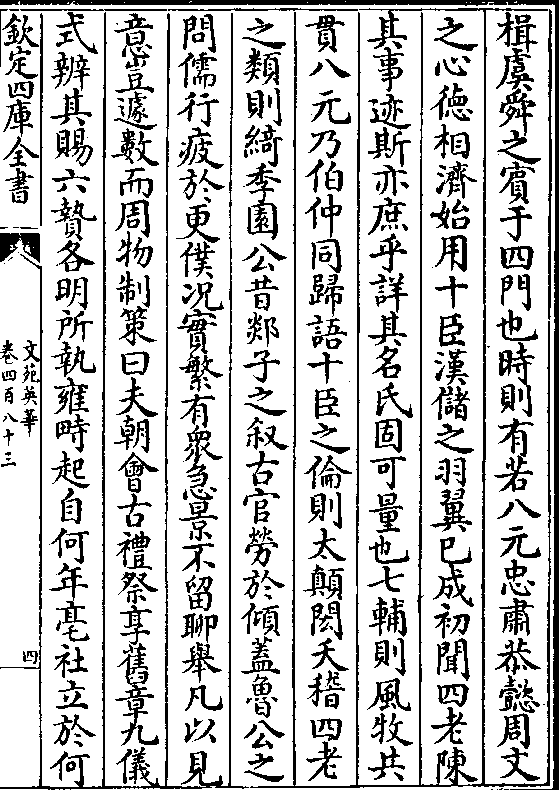 楫虞舜之賓于四門也時則有若八元忠肅恭懿周文
之心德相濟始用十臣漢儲之羽翼已成初聞四老陳
其事迹斯亦庶乎詳其名氏固可量也七輔則風牧共
貫八元乃伯仲同歸語十臣之倫則太顛閎夭稽四老
之類則綺季園公昔郯子之叙古官勞於傾蓋魯公之
問儒行疲於更僕况實繁有衆急景不留聊舉凡以見
意豈遽數而周物制策曰夫朝會古禮祭享舊章九儀
式辨其賜六贄各明所執雍畤起自何年亳社立於何
欽定四庫全書
文苑英華
卷四百八十三
四